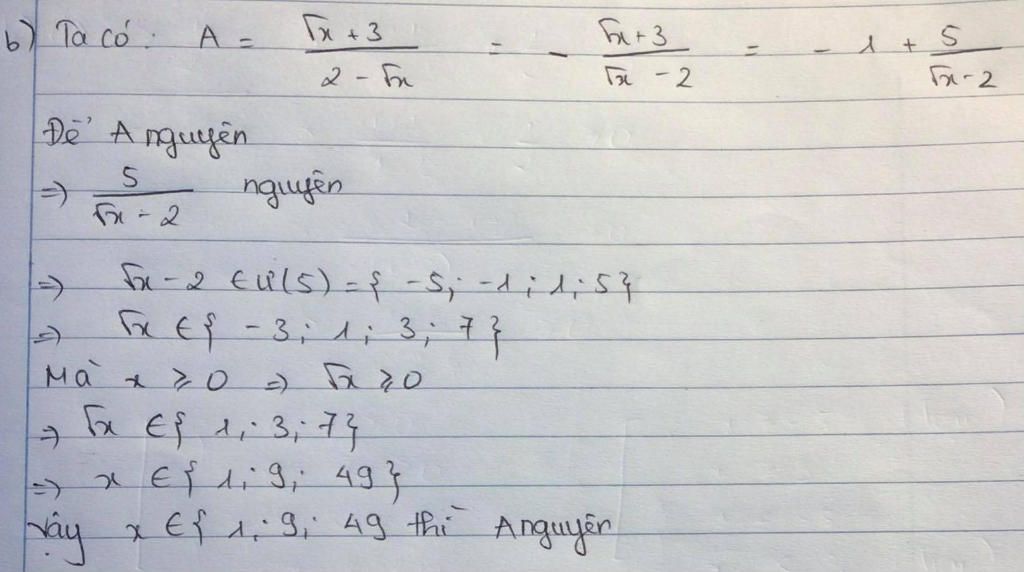 b) Ta có: A = (√x + 3)/(2 - √x) = - (√x + 3)/(√x - 2) = - 1 + 5/(√x - 2)
Để A nguyên
=> 5/(√x - 2) nguyên
=> √x - 2 ∈ Ư(5) = { -5; -1; 1; 5}
=> √x ∈ { -3; 1; 3; 7 }
Mà x ≥ 0 => √x ≥ 0
=> √x ∈ { 1; 3; 7}
=> x ∈ { 1; 9; 49}
Vậy x ∈ { 1; 9; 49 thì A nguyên